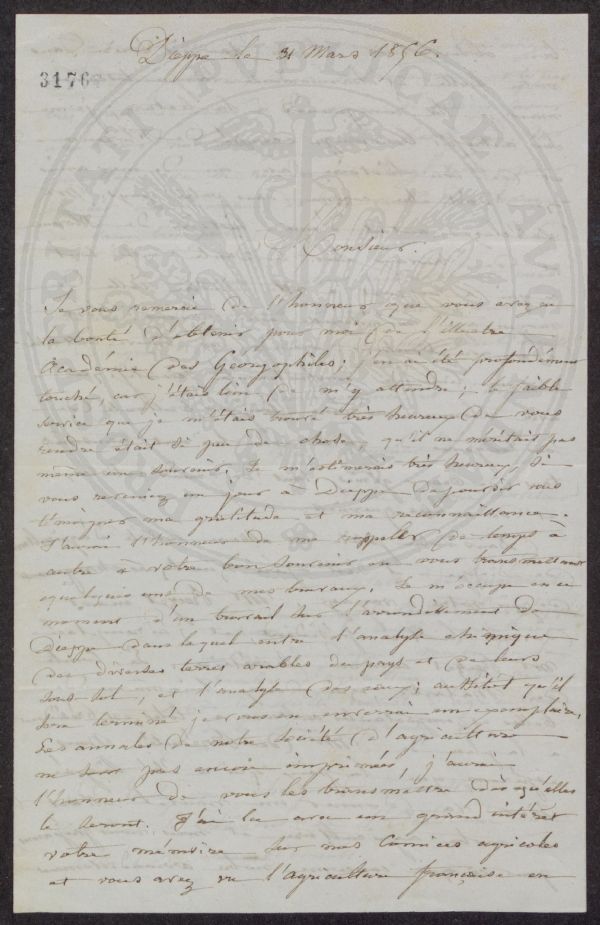 Dieppe le 31 Mars 1856.
3176
PROSPERITATI PUBLICAE AUGENDAE
Monsieur.
Je vous remercie de l'honneur que vous avez eu
la bonté d'obtenir pour moi de l'illustre
Académie des Géorgophiles; j'en ai été profondément
touché, car j'étais loin de m'y attendre; le faible
service que je m'étais trouvé très heureux de vous
rendre était si peu de chose, qu'il ne méritais pas
même un souvenir. Je m'estimerais très heureux, si
vous reveniez un jour à Dieppe de pouvoir vous
témoigner ma gratitude et ma reconnaissance.
J'aurai l'honneur de me rappeller de temps à
autre à votre bon souvenir en vous transmettant
quelques uns de mes travaux. Je m'occupe en ce
moment d'un travail sur l'arrondissement de
Dieppe dans lequel entre l'analyse chimique
des diverses terres arables du pays et de leurs
sous-sol, et l'analyse des eaux; aussitôt qu'il
sera terminé je vous en enverrai un exemplaire.
Les annales de notre société d'agriculture
ne sont pas encore imprimées, j'aurai
l'honneur de vous les transmettre dès qu'elles
le seront. J'ai lu avec un grand intérêt
votre mémoire sur nos Comices agricoles
et vous avez vu l'agriculture française en